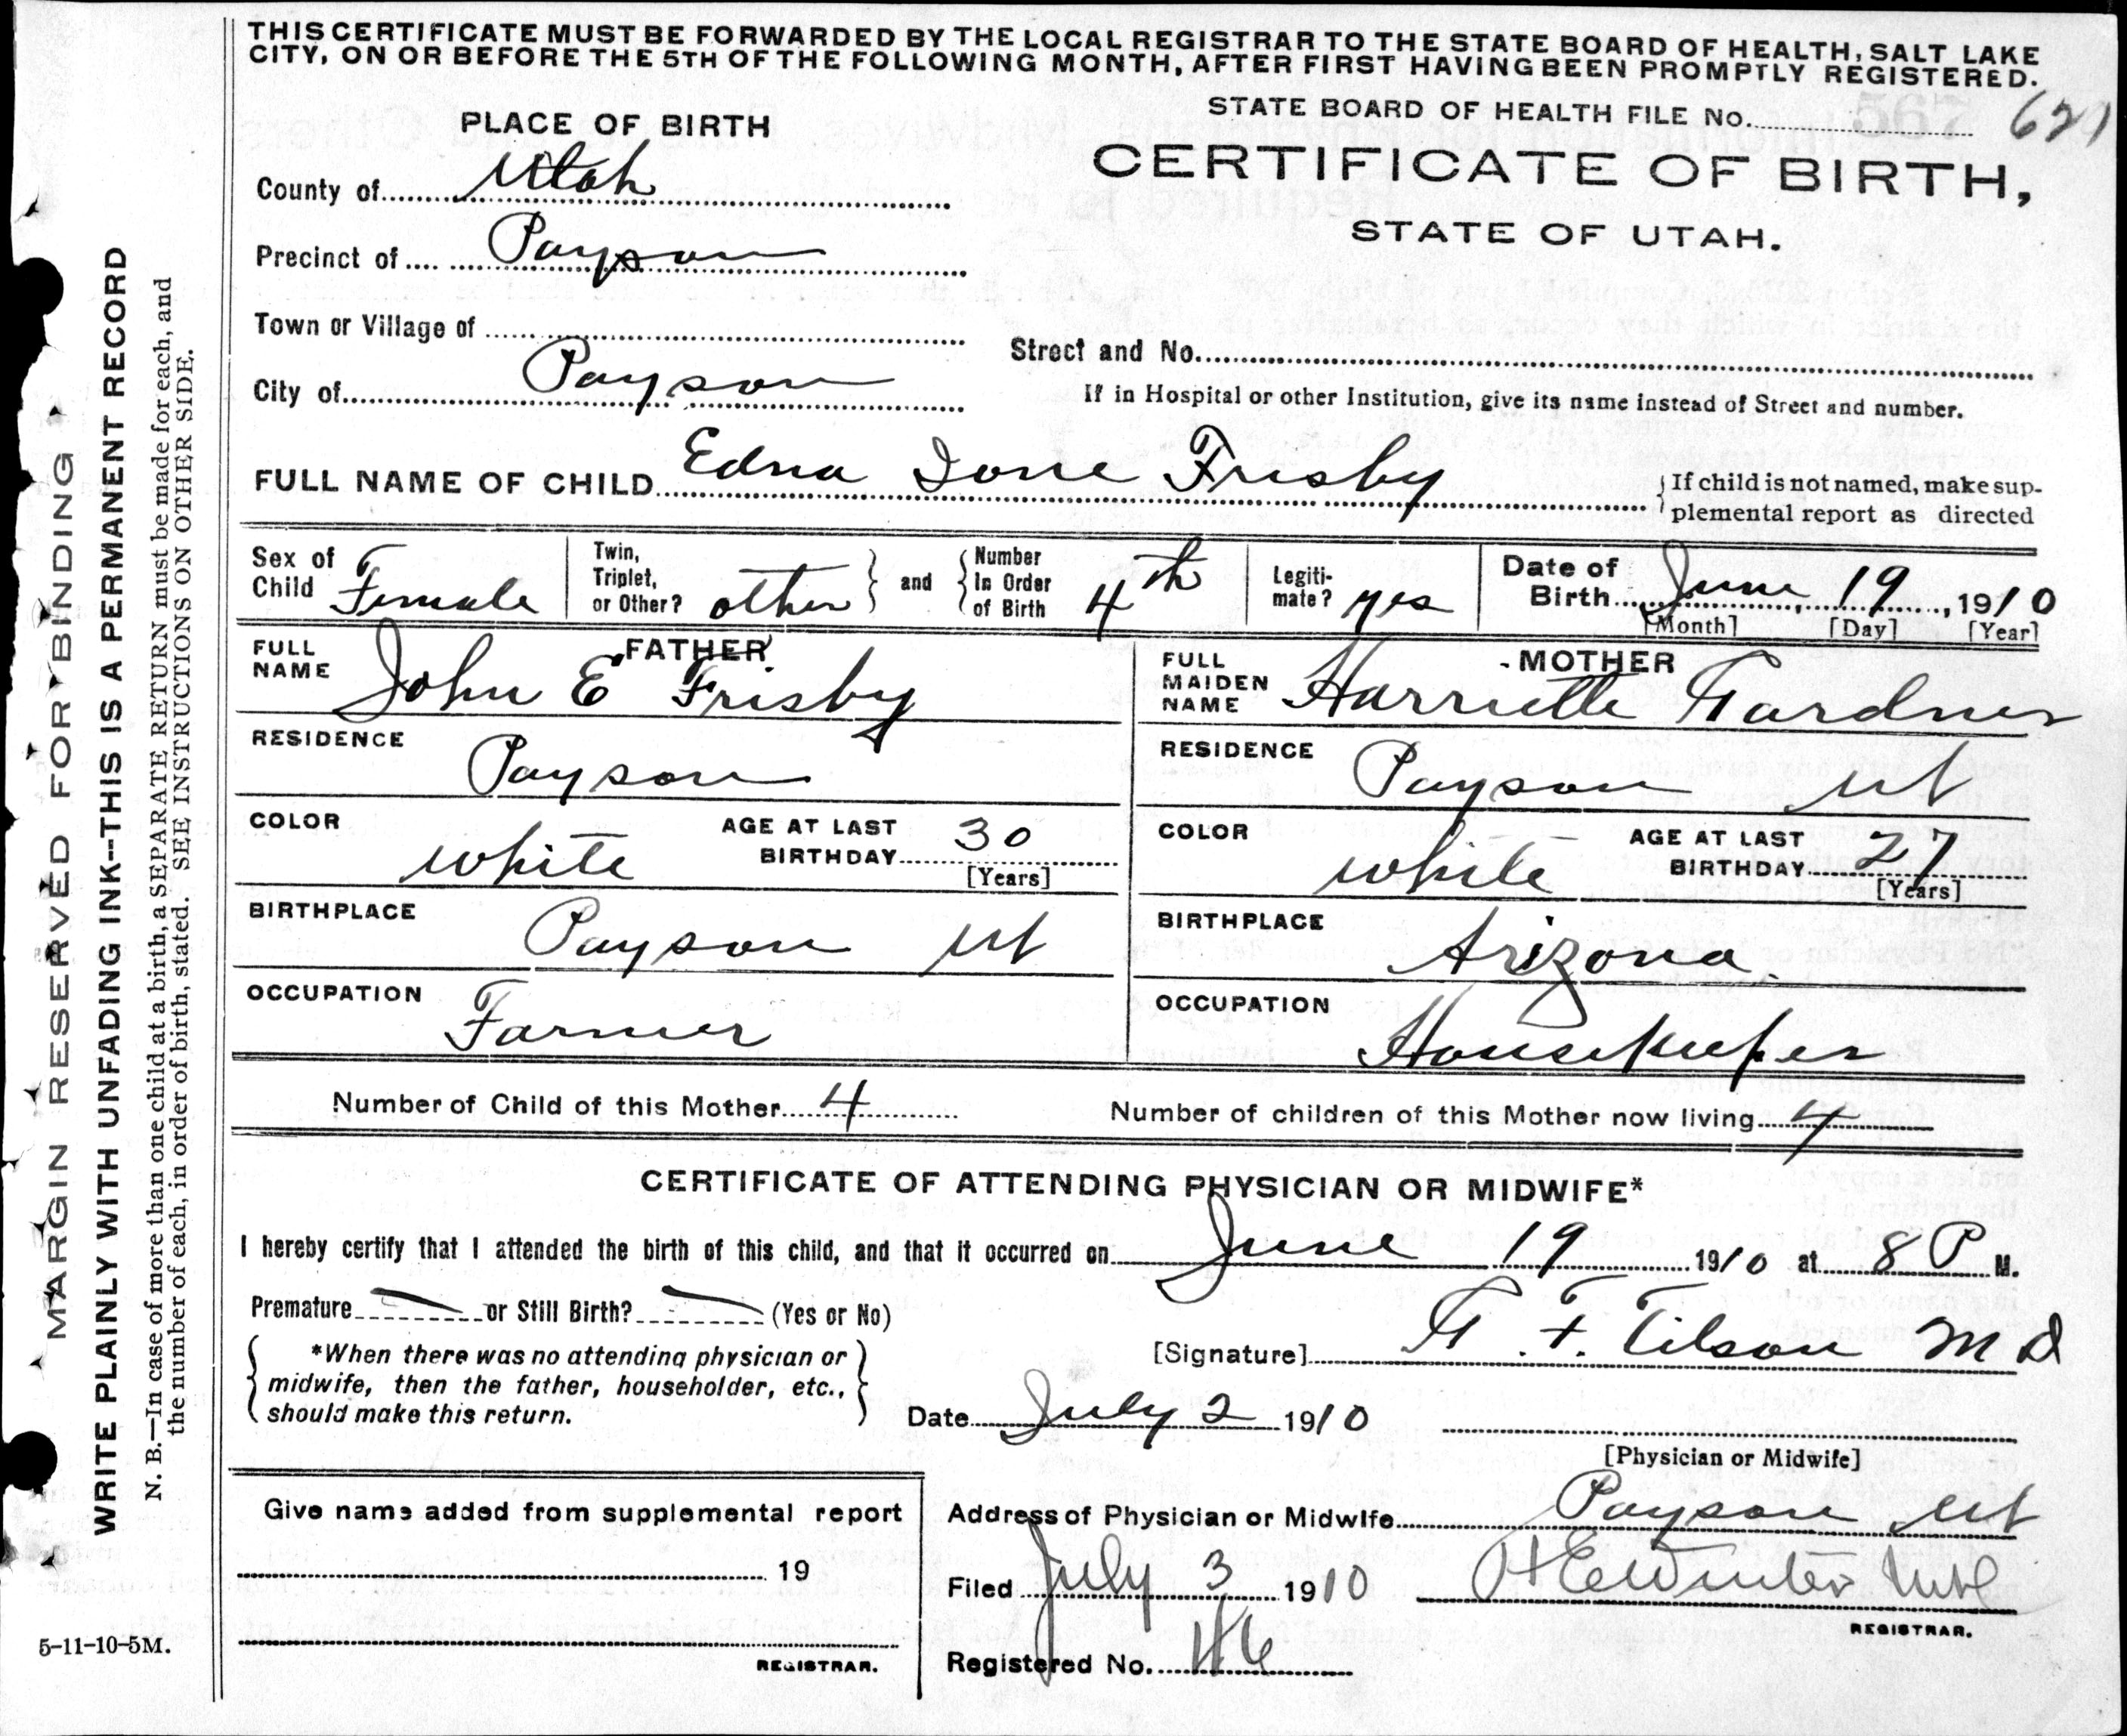 THIS CERTIFICATE MUST BE FORWARDED BY THE LOCAL REGISTRAR TO THE STATE BOARD OF HEALTH, SALT LAKE
CITY, ON OR BEFORE THE 5TH OF THE FOLLOWING MONTH, AFTER FIRST HAVING BEEN PROMPTLY REGISTERED.
STATE BOARD OF HEALTH FILE No. 567 629
PLACE OF BIRTH
CERTIFICATE OF BIRTH,
STATE OF UTAH.
County of Utah
Precinct of Payson
Town or Village of
Street and No.
City of Payson
If in Hospital or other Institution, give its name instead of Street and number.
FULL NAME OF CHILD Edna Ione Frisby
If child is not named, make sup-
plemental report as directed
Sex of Child Female
Twin, Triplet, or Other? other
and Number In Order of Birth 4th
Legiti-mate? yes
Date of Birth June 19, 1910
[Month] [Day] [Year]
FATHER
FULL NAME John E Frisby
RESIDENCE Payson
COLOR white AGE AT LAST BIRTHDAY 30
[Years]
BIRTHPLACE Payson Ut
OCCUPATION Farmer
MOTHER
FULL MAIDEN NAME Harriette Gardner
RESIDENCE Payson Ut
COLOR white AGE AT LAST BIRTHDAY 27
[Years]
BIRTHPLACE Arizona
OCCUPATION Housekeeper
Number of Child of this Mother 4 Number of children of this Mother now living 4
CERTIFICATE OF ATTENDING PHYSICIAN OR MIDWIFE*
I hereby certify that I attended the birth of this child, and that it occurred on June 19 1910 at 8 P M.
Premature or Still Birth? (Yes or No)
*When there was no attending physician or
midwife, then the father, householder, etc.,
should make this return.
[Signature] G. F. Tilson M D
Date July 2 1910
[Physician or Midwife]
Give name added from supplemental report
19
REGISTRAR.
Address of Physician or Midwife Payson Ut
Filed July 3 1910 H E Winter
REGISTRAR.
Registered No. 46
5-11-10-5M.
MARGIN RESERVED FOR BINDING
WRITE PLAINLY WITH UNFADING INK--THIS IS A PERMANENT RECORD
N. B.—In case of more than one child at a birth, a SEPARATE RETURN must be made for each, and
the number of each, in order of birth, stated. SEE INSTRUCTIONS ON OTHER SIDE.